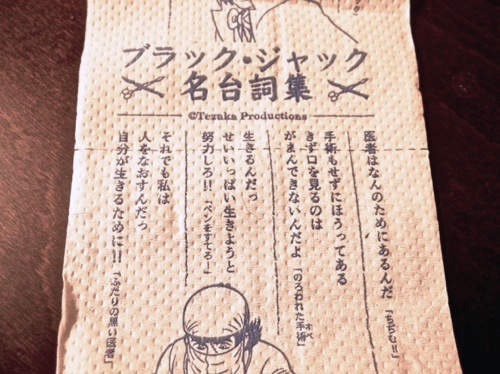 ブラック・ジャック
名台詞集
©Tezuka Productions
医者はなんのためにあるんだ 「ちぢむ!!」
手術もせずにほうってある
きず口を見るのは
がまんできないんだよ 「のろわれた手術」
オペ
生きるんだっ
せいいっぱい生きようと
努力しろ!! 「ペンをすてろ!」
それでも私は
人をなおすんだっ
自分が生きるために!! 「ふたりの黒い医者」